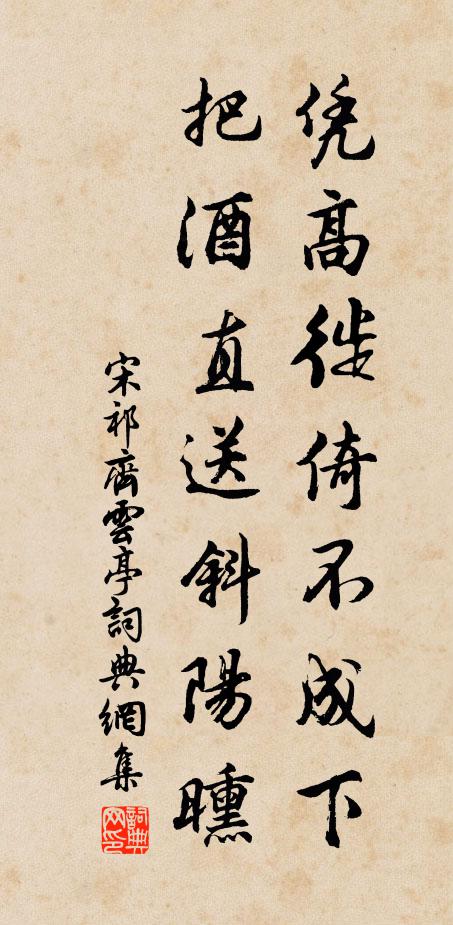 凭高徙倚不成下
把酒直送斜陽曛
宋祁齊雲亭詞典網集
詞典網印